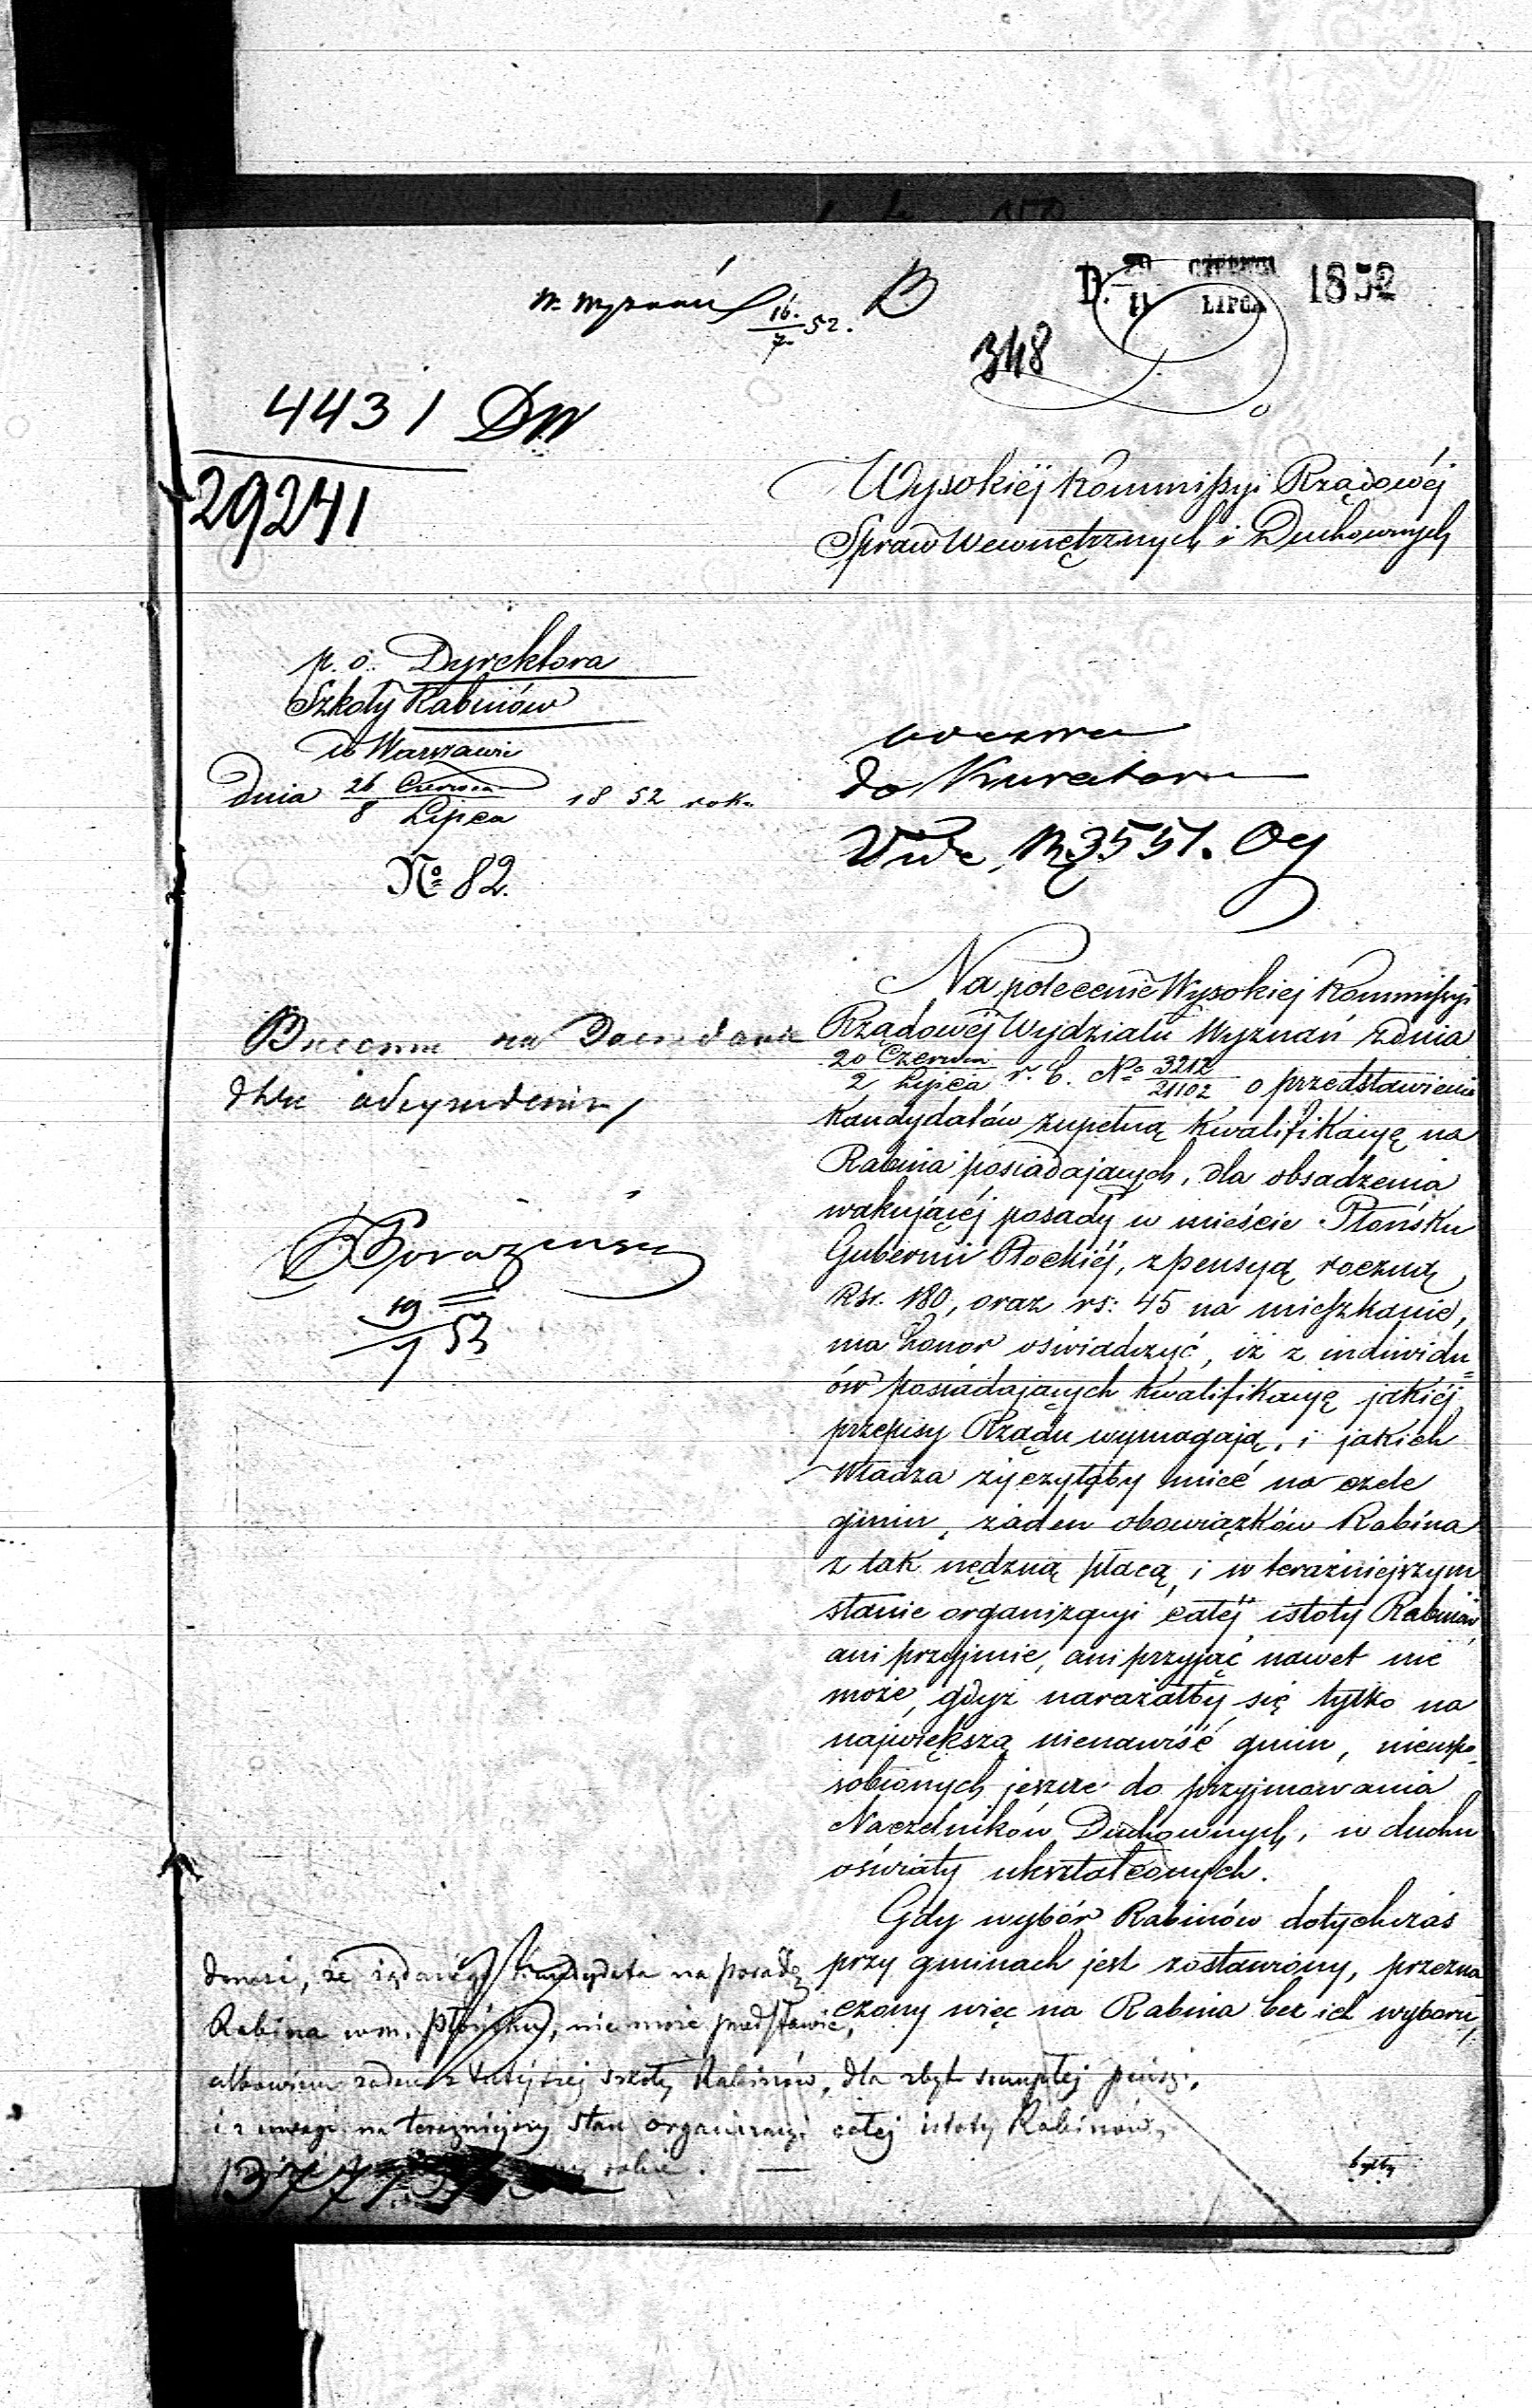 W. Wyznań 16./7. 52. B
D. 29/11 CZERWCA/LIPCA 1852
348
4431 DW
29241
Wysokiéj Kommissyi Rządowéj
Spraw Wewnętrznych i Duchownych
p. o. Dyrektora
Szkoły Rabinów
w Warszawie
dnia 26 Czerwca/8 Lipca 1852 roku
No 82.
odezwa
do Kuratora
3551.
Na polecenie Wysokiej Kommissyi
Rządowéj Wydziału Wyznań z dnia
20 Czerwca/2 Lipca r. b. No 3212/21102 o przedstawienie
Kandydatów zupełną kwalifikacyę na
Rabina posiadających, dla obsadzenia
wakującéj posady w mieście Płońsku
Gubernii Płockiéj, z pensyą roczną
Rsr. 180, oraz rs: 45 na mieszkanie,
ma honor oświadczyć, iż z indiwidu=
ów posiadających kwalifikacyę jakiéj
przepisy Rządu wymagają, i jakich
Władza życzyłaby mieć na czele
gmin, żaden obowiązków Rabina
z tak nędzną płacą, i w teraźniejszym
stanie organizacyi całéj istoty Rabinów
ani przyjmie, ani przyjąć nawet nie
może, gdyż narażałby się tylko na
największą nienawiść gmin, nieuspo=
sobionych jeszcze do przyjmowania
Naczelników Duchownych, w duchu
oświaty ukształconych.
Gdy wybór Rabinów dotychczas
przy gminach jest zostawiony, przezna
czony więc na Rabina bez ich wyboru,
byłby
na
19/1 53
donosi, że żądanego kandydata na posadę
Rabina w m. Płońsku, nie może przedstawić,
albowiem żaden z tutejszej szkoły Rabinów, dla zbyt szczupłej pensyi,
i z uwagi na teraźniejszy stan organizacyi całej istoty Rabinów,